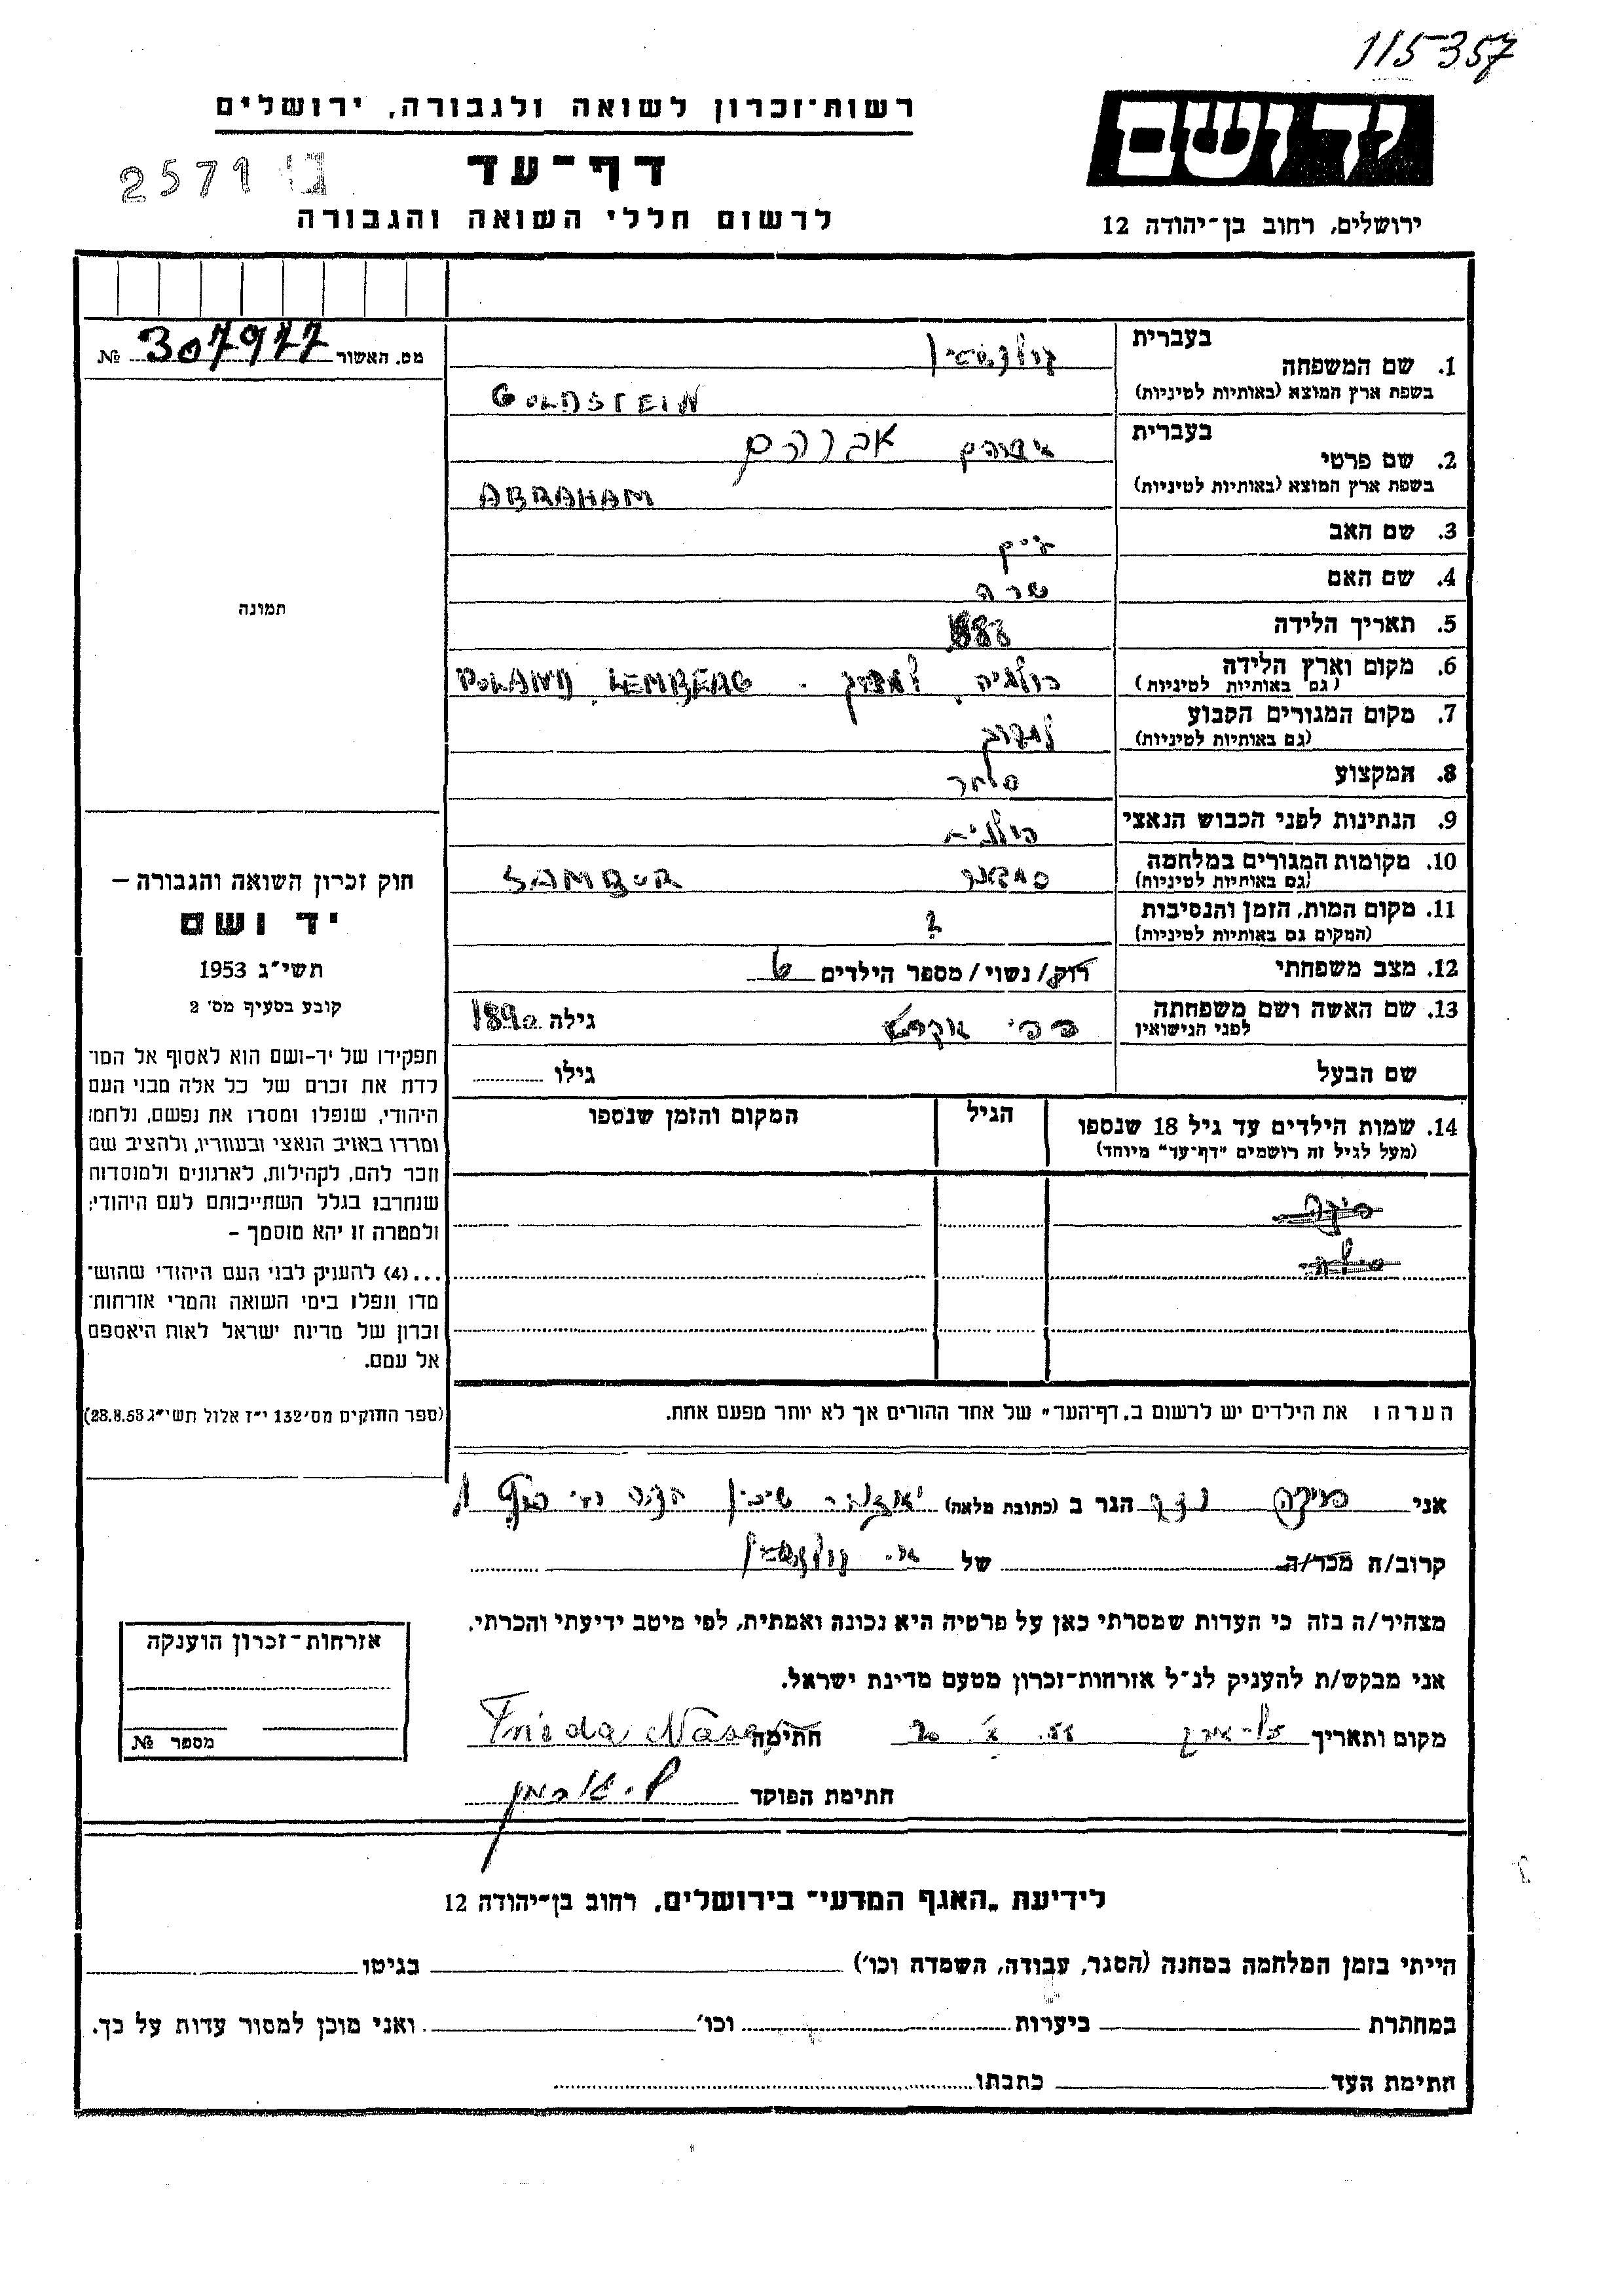 115357
רשות־זכרון לשואה ולגבורה, ירושלים
יד ושם
דף־עד
2571
לרשום חללי השואה והגבורה
ירושלים, רחוב בן־יהודה 12
מס. האשור 307977 №
בעברית
1. שם המשפחה
גולדשטיין
בשפת ארץ המוצא (באותיות לטיניות)
GOLDSTEIN
בעברית
2. שם פרטי
אברהם אברהם
בשפת ארץ המוצא (באותיות לטיניות)
ABRAHAM
3. שם האב
4. שם האם שרה
5. תאריך הלידה 1888
6. מקום וארץ הלידה
(גם באותיות לטיניות)
פולניה, למברג. POLAND, LEMBERG
7. מקום המגורים הקבוע
(גם באותיות לטיניות)
למברג
8. המקצוע סוחר
9. הנתינות לפני הכבוש הנאצי פולנית
10. מקומות המגורים במלחמה
(גם באותיות לטיניות)
סמבור SAMBOR
11. מקום המות, הזמן והנסיבות
(המקום גם באותיות לטיניות)
?
12. מצב משפחתי רוק/נשוי/מספר הילדים 6
13. שם האשה ושם משפחתה
לפני הנישואין
גילה 1890
שם הבעל גילו
14. שמות הילדים עד גיל 18 שנספו
(מעל לגיל זה רושמים "דף־עד" מיוחד)
הגיל
המקום והזמן שנספו
תמונה
חוק זכרון השואה והגבורה –
יד ושם
תשי"ג 1953
קובע בסעיף מס' 2
תפקידו של יד-ושם הוא לאסוף אל המו־
לדת את זכרם של כל אלה מבני העם
היהודי, שנפלו ומסרו את נפשם, נלחמו
ומרדו באויב הנאצי ובעוזריו, ולהציב שם
וזכר להם, לקהילות, לארגונים ולמוסדות
שנחרבו בגלל השתייכותם לעם היהודי;
ולמטרה זו יהא מוסמך –
...(4) להעניק לבני העם היהודי שהוש־
מדו ונפלו בימי השואה והמרי אזרחות־
זכרון של מדינת ישראל לאות היאספם
אל עמם.
(ספר החוקים מס' 132 י"ז אלול תשי"ג 28.8.53)
הערה: את הילדים יש לרשום ב"דף־העד" של אחד ההורים אך לא יותר מפעם אחת.
אני פרידה הגר ב (כתובת מלאה) שיכון
קרוב/ה מכר/ה של א. גולדשטיין
מצהיר/ה בזה כי העדות שמסרתי כאן על פרטיה היא נכונה ואמתית, לפי מיטב ידיעתי והכרתי.
אני מבקש/ת להעניק לנ"ל אזרחות־זכרון מטעם מדינת ישראל.
מקום ותאריך תל-אביב חתימה Frieda
חתימת הפוקד
אזרחות־זכרון הוענקה
מספר №
לידיעת „האגף המדעי" בירושלים, רחוב בן־יהודה 12
הייתי בזמן המלחמה במחנה (הסגר, עבודה, השמדה וכו') בגיטו
במחתרת ביערות וכו' ואני מוכן למסור עדות על כך.
חתימת העד כתבתו